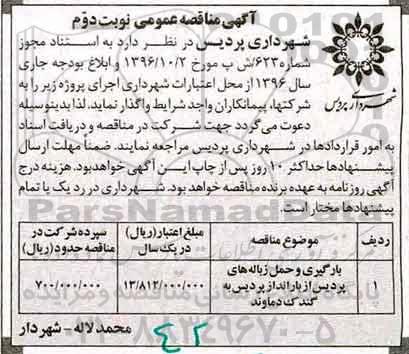 آگهی مناقصه عمومی نوبت دوّم
شهرداری پردیس
شهرداری پردیس در نظر دارد به استناد مجوز
شماره ۶۲۳/ش پ مورخ ۱۳۹۶/۱۰/۲ و ابلاغ بودجه جاری
سال ۱۳۹۶ از محل اعتبارات شهرداری اجرای پروژه زیر را به
شرکتها، پیمانکاران واجد شرایط واگذار نماید. لذا بدینوسیله
دعوت می‌گردد جهت شرکت در مناقصه و دریافت اسناد
به امور قراردادها در شهرداری پردیس مراجعه نمایند. ضمناً مهلت ارسال
پیشنهادها حداکثر ۱۰ روز پس از چاپ این آگهی خواهد بود. هزینه درج
آگهی روزنامه به عهده برنده مناقصه خواهد بود. شهرداری در رد یک یا تمام
پیشنهادها مختار است.
ردیف موضوع مناقصه مبلغ اعتبار (ریال) در یک سال سپرده شرکت در مناقصه حدود (ریال)
۱ بارگیری و حمل زباله های پردیس از بارانداز پردیس به گندک دماوند ۱۳/۸۱۲/۰۰۰/۰۰۰ ۷۰۰/۰۰۰/۰۰۰
محمد لاله - شهردار
ParsNamad
۰۲۱-۸۸۳۴۹۶۷۰-۵